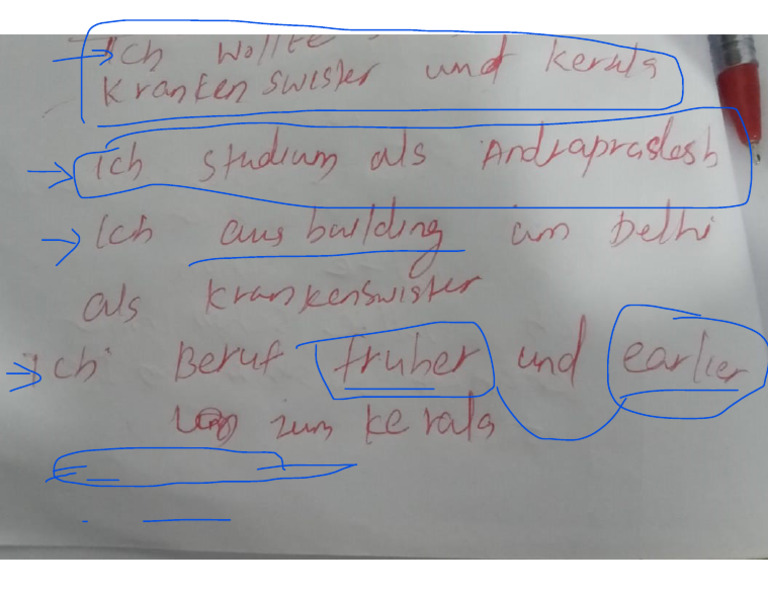 Ich wollte
Krankenswister und Kerala
Ich studium als Andrapradesh
Ich ausbailding im Delhi
als Krankenswister
Ich Beruf fruher und earlier
zum Kerala